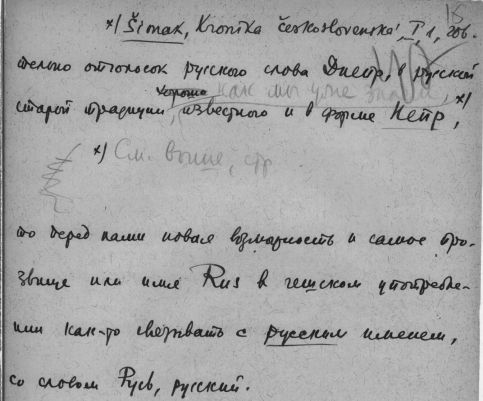 15
x) Šimák, Kronika československá, I 1, 206.
тельно отголосок русского слова Днепр, в русской
хорошо как мы уже знаем,
старой традиции, известного и в форме Непр, x)
x) См. выше, стр
то перед нами новая возможность и самое про-
звище или имя Rus в чешском употребле-
нии как-то связывать с русским именем,
со словом Русь, русский.